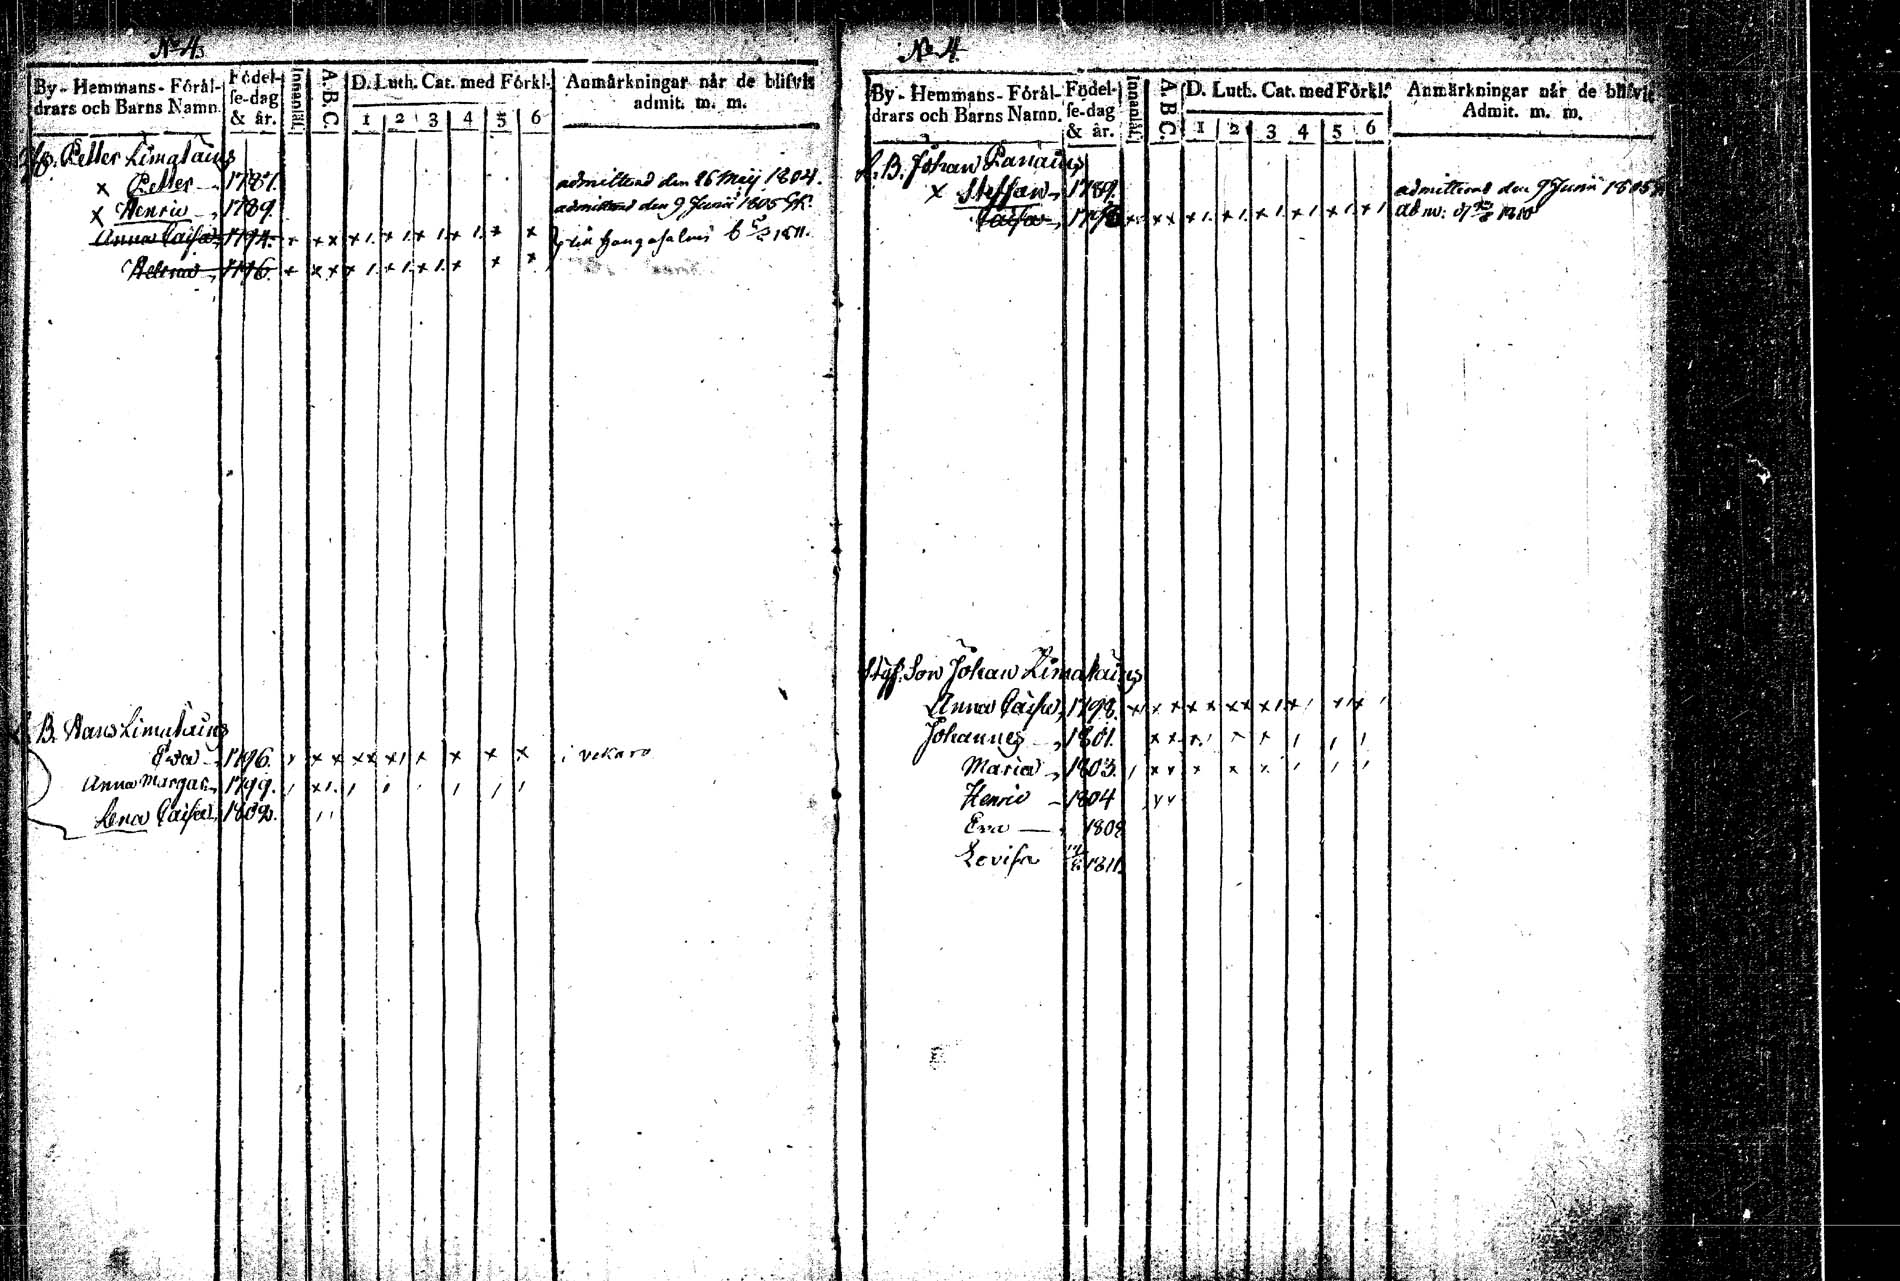 No 4
By- Hemmans- Föräl-
drars och Barns Namn.
Födel-
se-dag
& år.
Innanläs.
A. B. C.
D. Luth. Cat. med Förkl.
1 2 3 4 5 6
Anmärkningar når de blifvit
admit. m. m.
Petter Limatains
x Petter 1787. admitterad den 26 Maij 1804.
x Henric 1789. admitterad den 9 Junii 1805
Anna Caisa 1794. x x x x 1. x 1. x 1. x 1. x x
Helena 1796. x x x x 1. x 1. x 1. x x x
B. Hans Limatains
Eva 1796. x x x x x x 1 x x x x i vekaro
Anna Margar. 1799.
Lena Caisa
No 4.
By- Hemmans- Föräl-
drars och Barns Namn.
Födel-
se-dag
& år.
Innanläs.
A. B C.
D. Luth. Cat. med Förkl.
1 2 3 4 5 6
Anmärkningar når de blifvit
Admit. m. m.
B. Johan Panains
x Steffan 1789. admitterad den 9 Junii 1805
Caisa
Styf. Son Johan Limatains
Anna Caisa 1798.
Johannes 1801.
Maria 1803.
Henric 1804
Eva
Lovisa 1811.